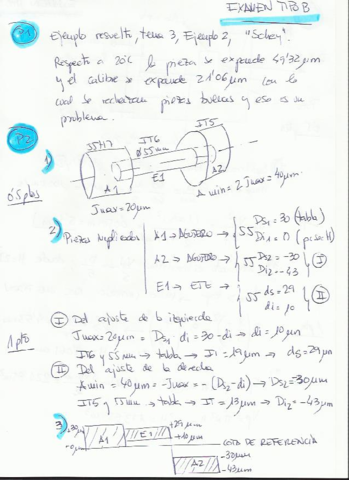 EXAMEN TIPO B
P1
Ejemplo resuelto, tema 3, Ejemplo 2, "Schey".
Respecto a 20°C la pieza se expande 49'32μm
y el calibre se expande 21'06μm con lo
cual se rechazan piezas buenas y eso es un
problema.
P2
1)
0'5 ptos
55H7
IT6
Ø55mm
IT5
A1
E1
A2
Jmax=20μm
Amin=2Jmax=40μm
2) Piezas implicadas
A1 → AGUJERO → 55 Ds1=30 (tabla)
Di1=0
A2 → AGUJERO → 55 Ds2=-30
Di2=-43 (I)
E1 → EJE → 55 ds=29
di=10 (II)
1 pto
(I) Del ajuste de la izquierda
Jmax=20μm = Ds1-di=30-di → di=10μm
IT6 y 55mm → tabla → IT=19μm → ds=29μm
(II) Del ajuste de la derecha
Amin=40μm=-Jmax=-(Ds2-di) → Ds2=-30μm
IT5 y 55mm → tabla → IT=13μm → Di2=-43μm
3)
+30μm
-0μm
A1
E1
+29μm
+10μm
COTA DE REFERENCIA
A2
-30μm
-43μm